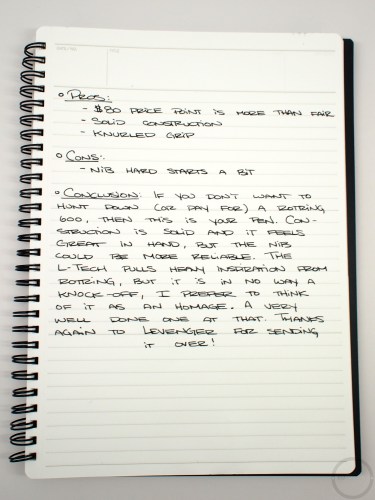 ° Pros:
- $80 price point is more than fair
- Solid construction
- Knurled grip
° Cons:
- Nib hard starts a bit
° Conclusion: If you don't want to
hunt down (or pay for) a Rotring
600, then this is your pen. Con-
struction is solid and it feels
great in hand, but the nib
could be more reliable. The
L-Tech pulls heavy inspiration from
Rotring, but it is in no way a
knock-off, I prefer to think
of it as an homage. A very
well done one at that. Thanks
again to Levenger for sending
it over!